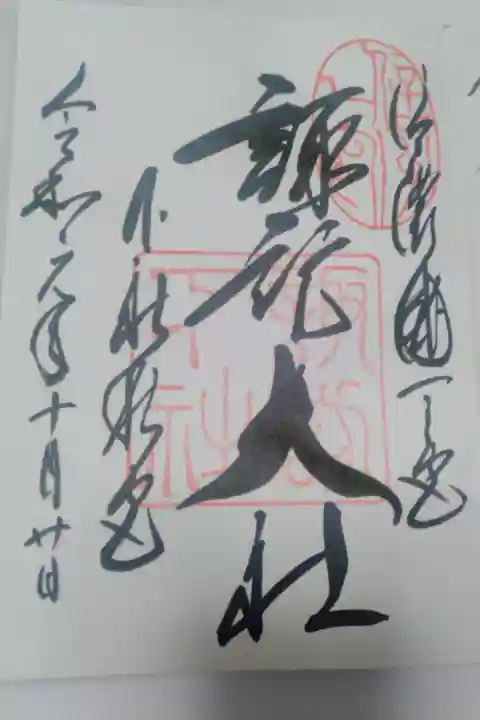 信濃國一之宮
諏訪大社
下社秋宮
令和元年十月廿日